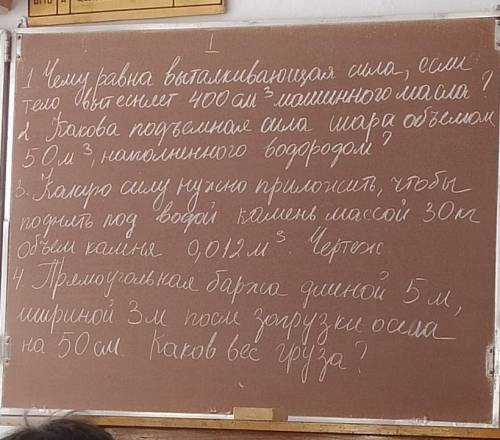 1
1 Чему равна выталкивающая сила, если
тело вытесняет 400 см³ машинного масла?
2. Какова подъемная сила шара объемом
50 м³, наполненного водородом?
3. Какую силу нужно приложить, чтобы
поднять под водой камень массой 30 кг
объем камня 0,012 м³. Чертеж
4. Прямоугольная баржа длиной 5 м,
шириной 3 м после загрузки осела
на 50 см. Каков вес груза?